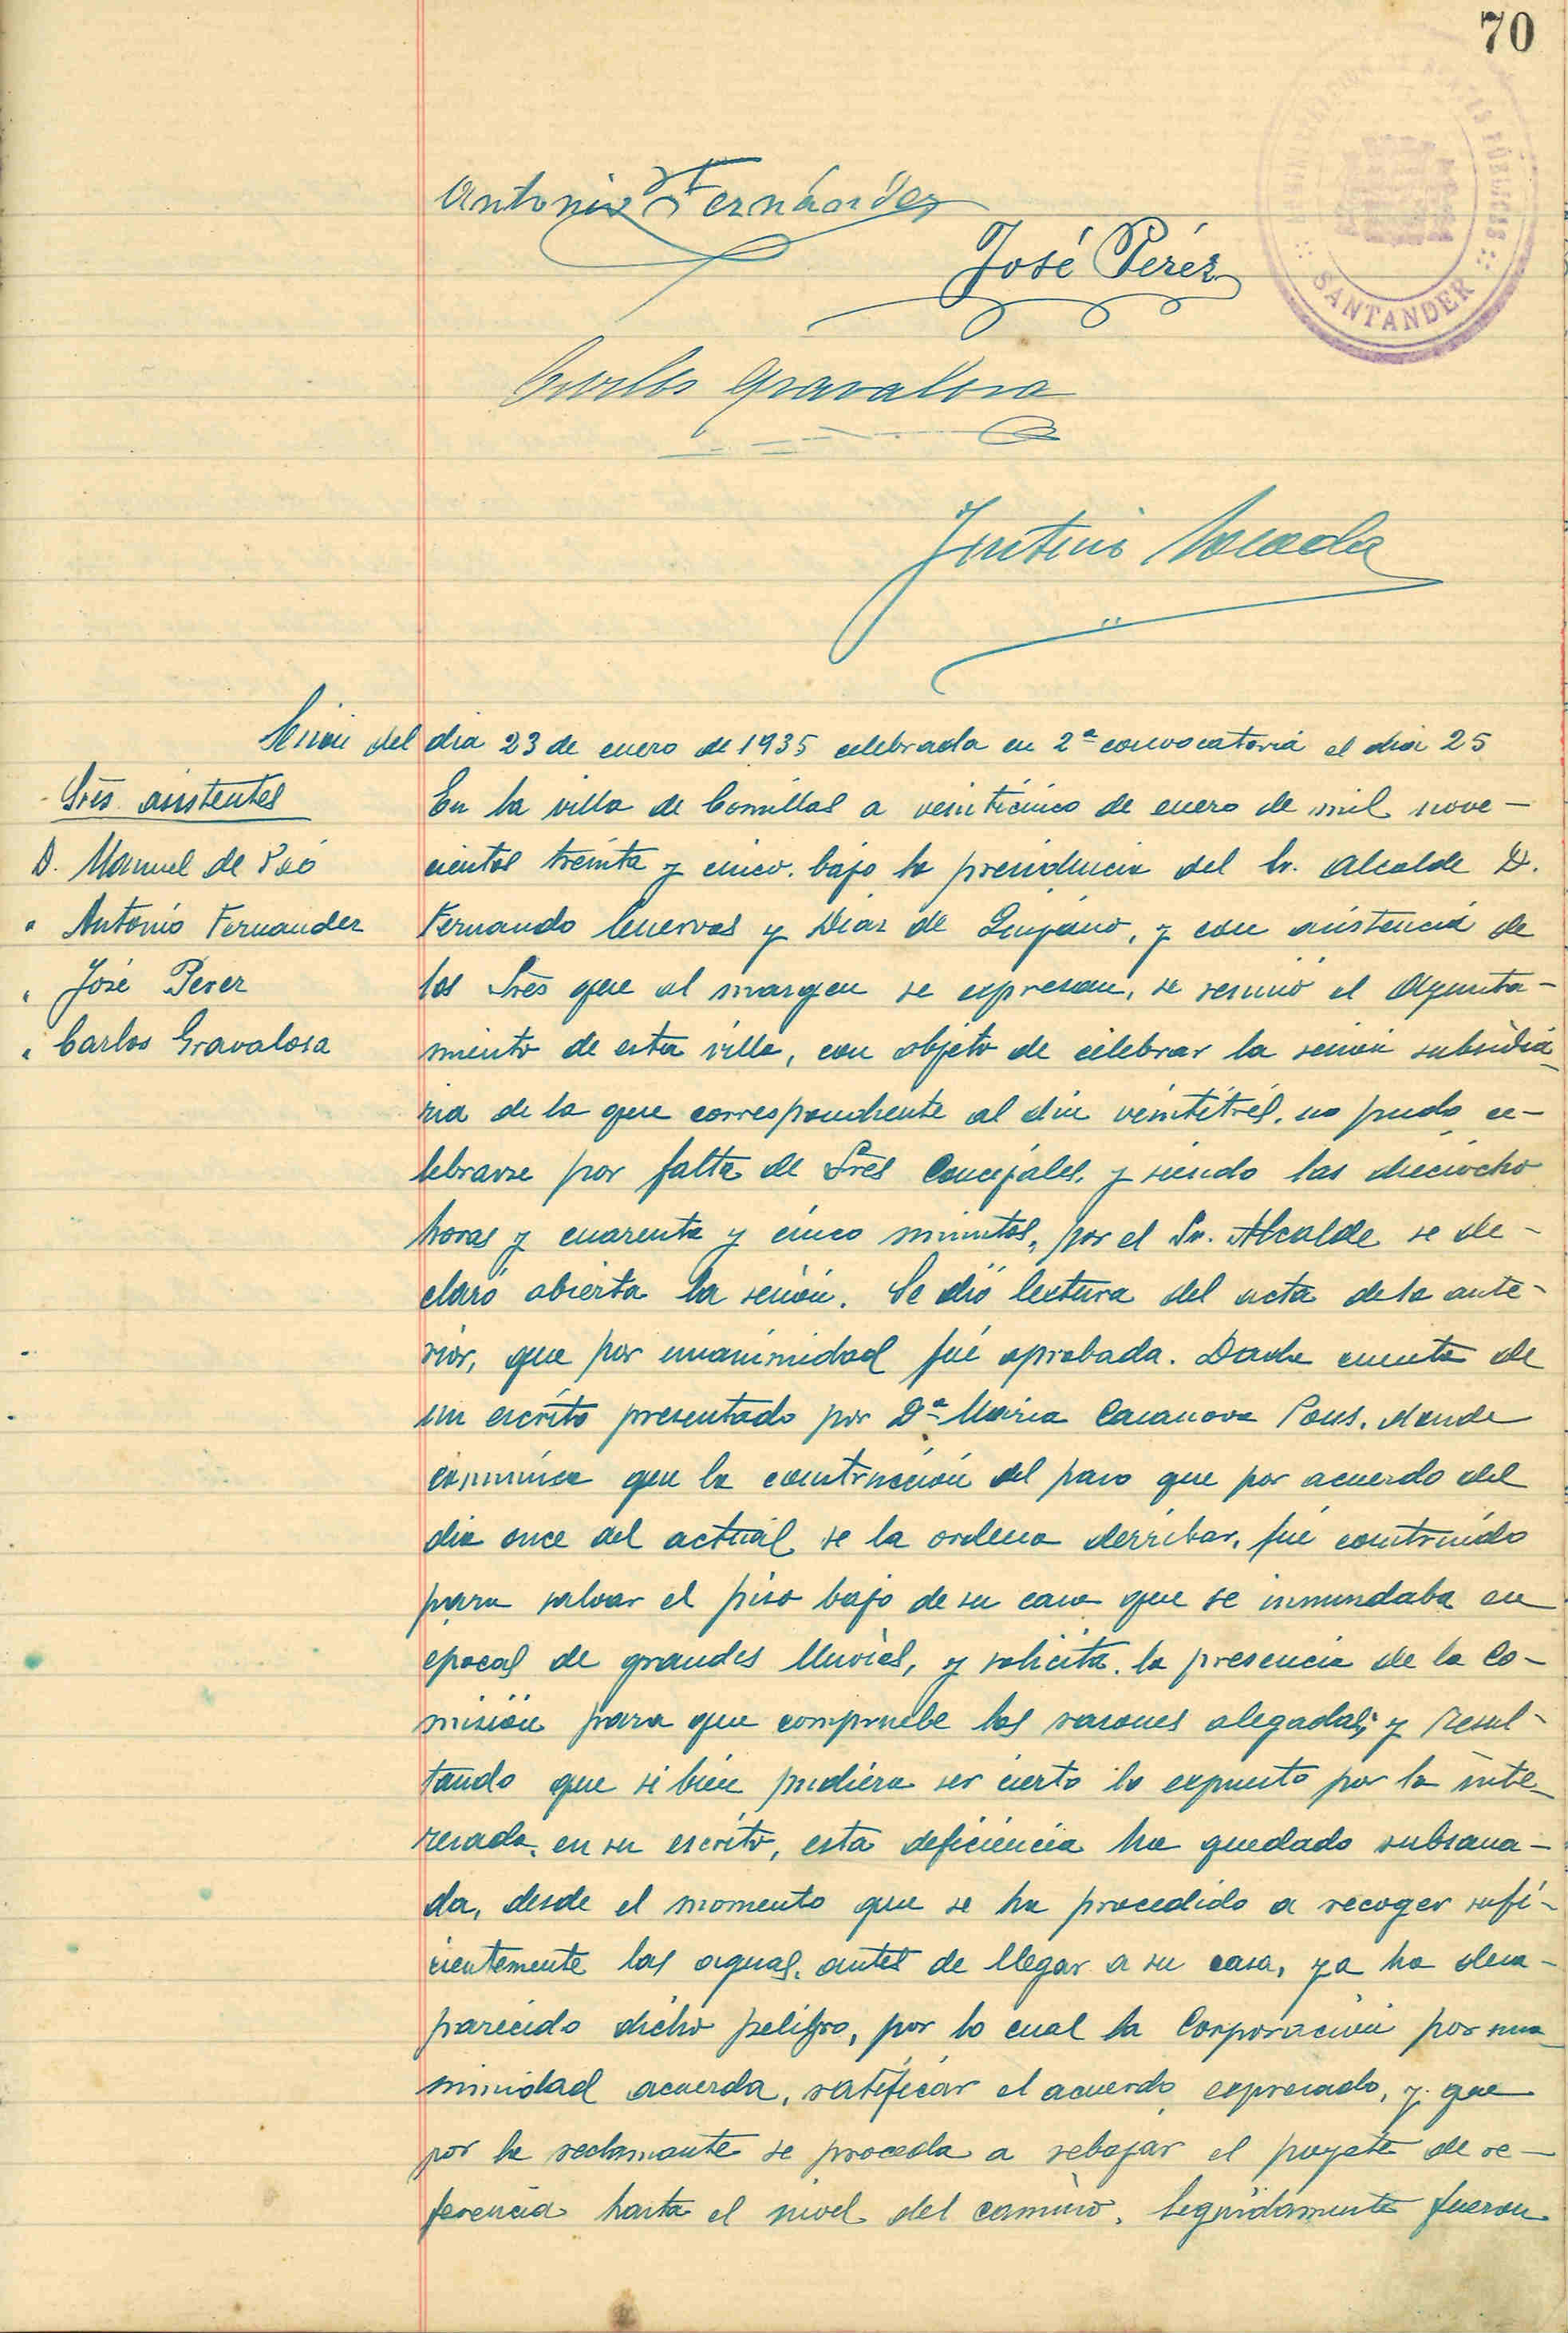 70
SANTANDER
Antonio Fernández
José Pérez
Carlos Gravalosa
Sesión del dia 23 de enero de 1935 celebrada en 2ª convocatoria el dia 25
Sres. asistentes
D. Manuel de
" Antonio Fernandez
" José Perez
" Carlos Gravalosa
En la villa de Comillas a veinticinco de enero de mil nove-
cientos treinta y cinco. bajo la presidencia del Sr. Alcalde D.
Fernando Cuervas y Diaz de Quijano, y con asistencia de
los Sres que al margen se expresan, se reunió el Ayunta-
miento de esta villa, con objeto de celebrar la sesión subsidia-
ria de la que correspondiente al dia veintitrés, no pudo ce-
lebrarse por falta de Sres Concejales, y siendo las dieciocho
horas y cuarenta y cinco minutos, por el Sr. Alcalde se de-
claró abierta la sesión. Se dió lectura del acta de la ante-
rior, que por unanimidad fué aprobada. Dada cuenta de
un escrito presentado por Dª Maria Casanova Pons, donde
comunica que la construcción del paso que por acuerdo del
dia once del actual se la ordena derribar, fué construido
para salvar el piso bajo de su casa que se innundaba en
épocas de grandes lluvias, y solicita la presencia de la Co-
misión para que compruebe las razones alegadas; y resul-
tando que si bien pudiera ser cierto lo expuesto por la inte-
resada, en su escrito, esta deficiencia ha quedado subsana-
da, desde el momento que se ha procedido a recoger sufi-
cientemente las aguas, antes de llegar a su casa, ya ha desa-
parecido dicho peligro, por lo cual la Corporación por una-
nimidad acuerda, ratificar el acuerdo expresado, y que
por la reclamante se proceda a rebajar el poyete de re-
ferencia hasta el nivel del camino. Seguidamente fueron